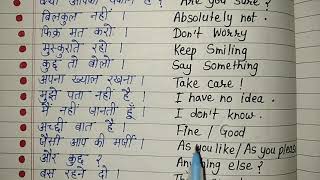 क्या आपको यकीन है ? Are you sure ?
बिलकुल नहीं । Absolutely not .
फिक्र मत करो । Don't Worry
मुस्कुराते रहो । Keep Smiling
कुछ तो बोलो । Say Something
अपना ख्याल रखना । Take care !
मुझे पता नहीं है । I have no idea .
मैं नहीं जानती हूँ । I don't know .
अच्छी बात है । Fine / Good
जैसी आप की मर्जी । As you like / As you please
और कुछ ? Anything else ?
बस रहने दो ।